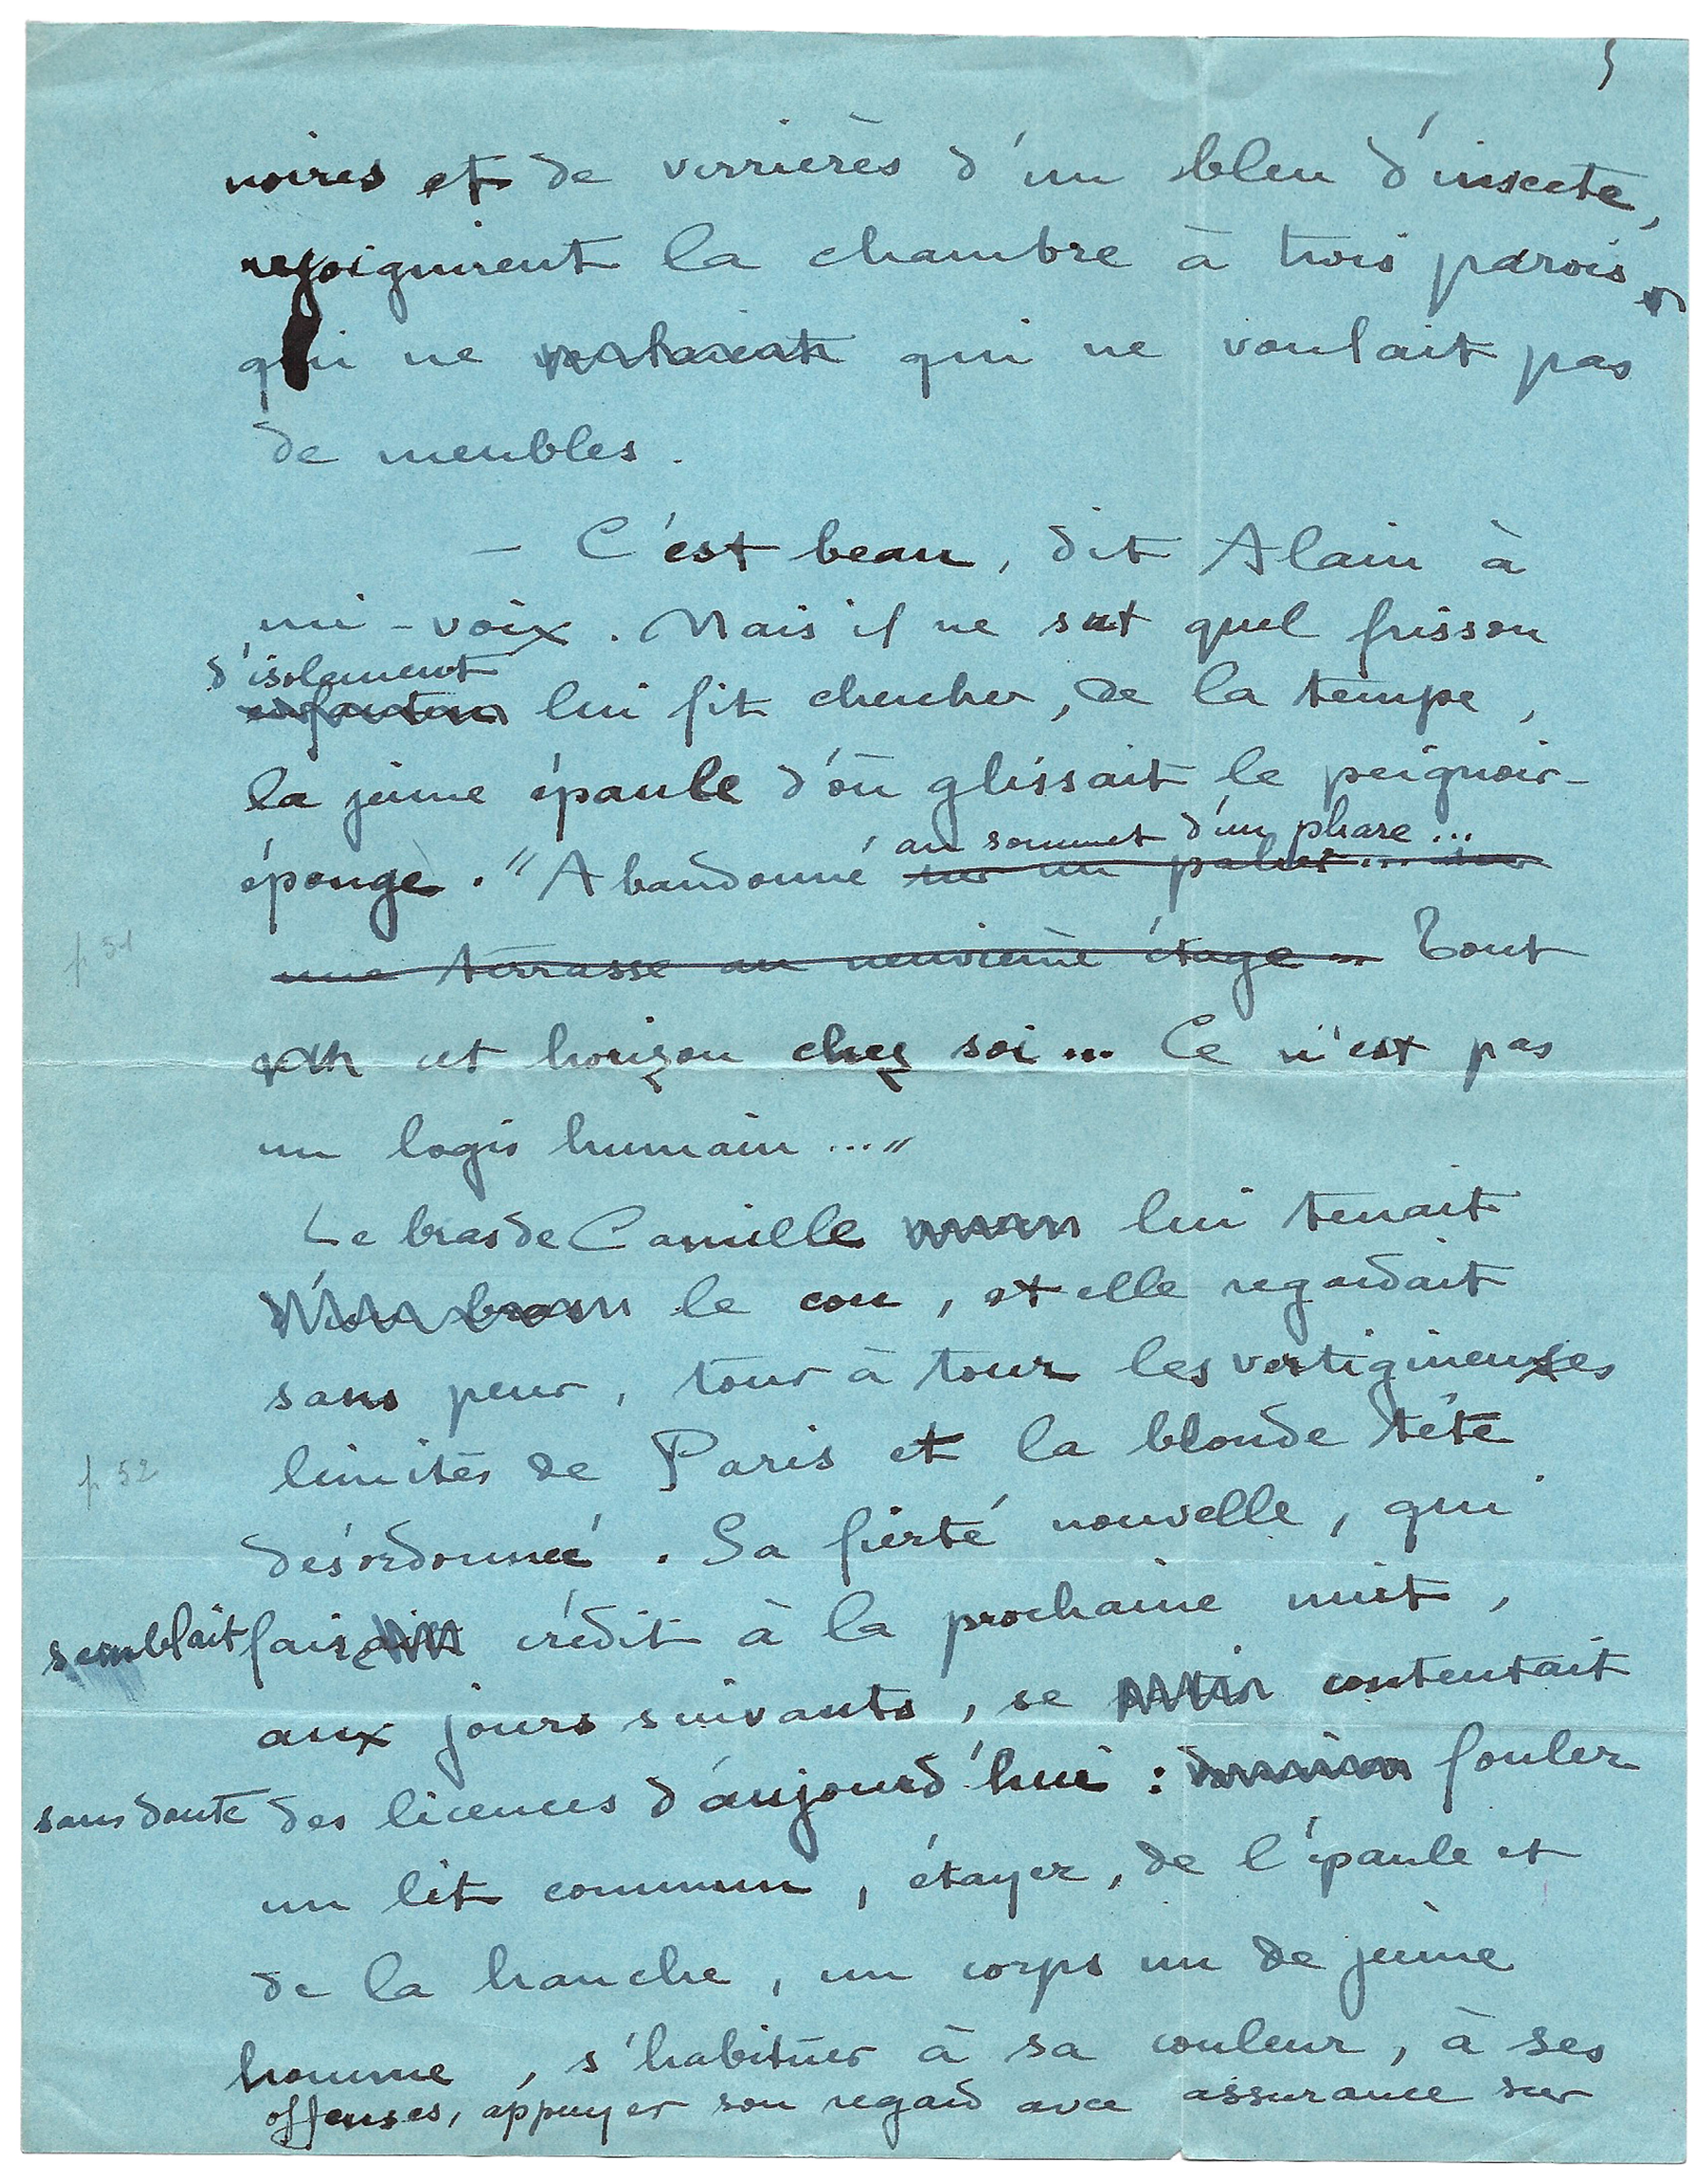 5
noires et de verrières d'un bleu d'insecte,
rejoignirent la chambre à trois parois,
qui ne qui ne voulait pas
de meubles.
— C'est beau, dit Alain à
mi-voix. Mais il ne sut quel frisson
d'isolement
lui fit chercher, de la tempe,
la jeune épaule d'où glissait le peignoir-
au sommet d'un phare...
éponge. "Abandonné sur un palier... sur
p 51
une terrasse au neuvième étage... Tout
cet horizon chez soi... Ce n'est pas
un logis humain..."
Le bras de Camille lui tenait
d'un bras le cou, et elle regardait
sans peur, tour à tour les vertigineuses
limites de Paris et la blonde tête
p 52
désordonnée. Sa fierté nouvelle, qui
semblait faire crédit à la prochaine nuit,
aux jours suivants, se contentait
sans doute des licences d'aujourd'hui : fouler
un lit commun, étayer, de l'épaule et
de la hanche, un corps nu de jeune
homme, s'habituer à sa couleur, à ses
offenses, appuyer son regard avec assurance sur